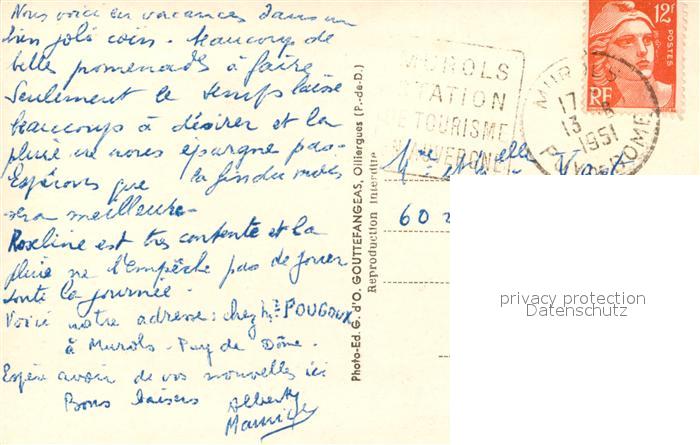 Nous voici en vacances dans un
bien joli coin. beaucoup de
belle promenades à faire
Seulement le temps laisse
beaucoup à désirer et la
pluie ne nous épargne pas.
Espérons que la fin du mois
sera meilleure.
Roseline est très contente et la
pluie ne l'empêche pas de jouer
toute la journée.
Voici notre adresse: chez Mr POUGOUX
à Murols - Puy de Dôme.
Espère avoir de vos nouvelles ici
Bons baisers Alberte
Maurice
Photo-Ed. G. d'O. GOUTTEFANGEAS, Olliergues (P.-de-D.)
Reproduction Interdite
MUROLS
STATION
DE TOURISME
EN AUVERGNE
MUROLS
17
13 - 8
1951
PUY-DE-DOME
12F
POSTES
RF
60
privacy protection
Datenschutz